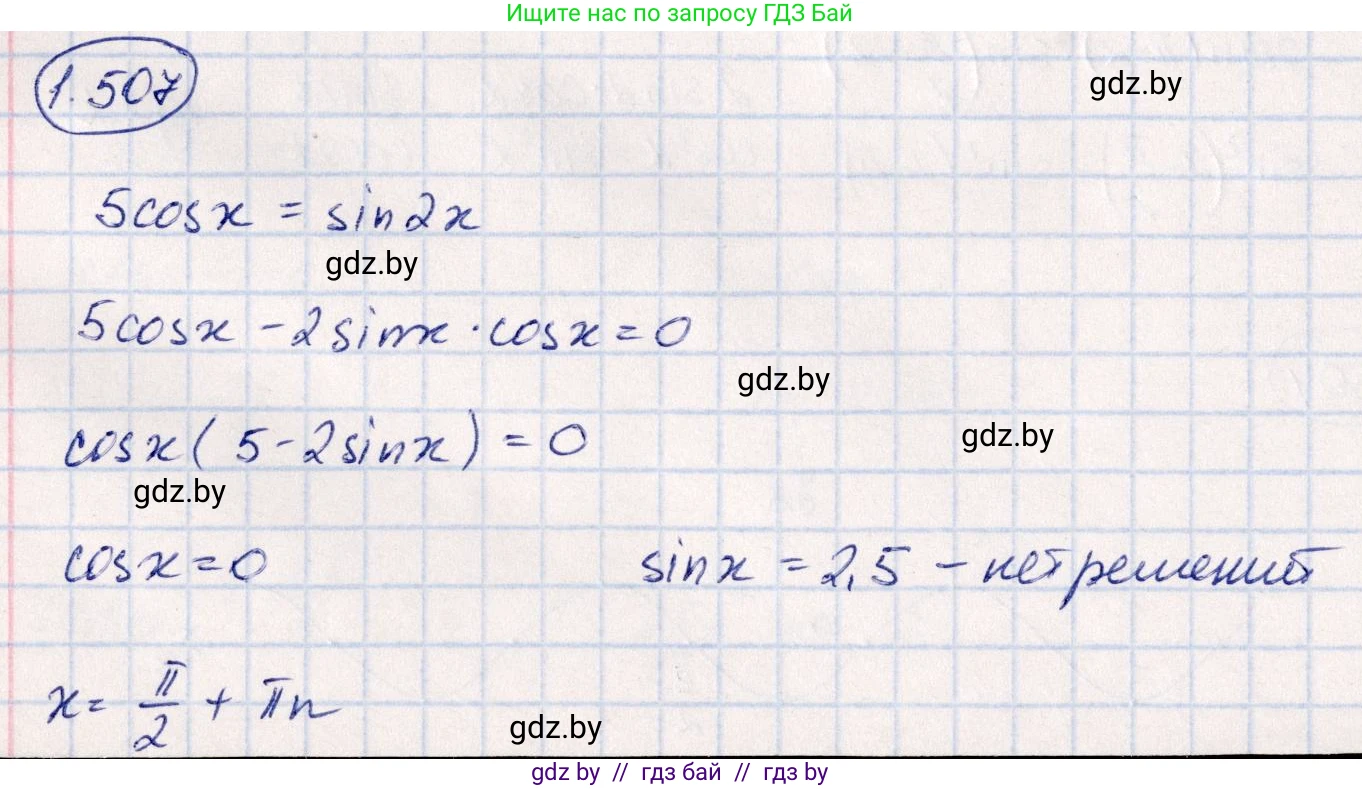 Ищите нас по запросу ГДЗ Бай
1.507
gdz.by
5cosx = sin2x
gdz.by
5cosx - 2sinx · cosx = 0
gdz.by
cosx( 5 - 2sinx) = 0
gdz.by
gdz.by
cosx = 0 sinx = 2,5 - нет решений
x = π/2 + πn
gdz.by
gdz by // гдз бай // гдз by